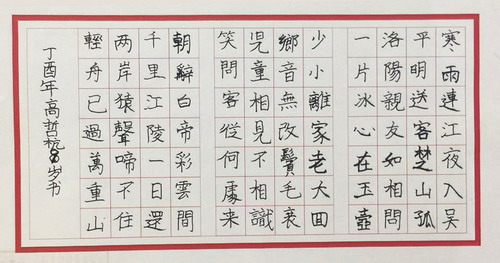 寒雨連江夜入吴
平明送客楚山孤
洛陽親友如相問
一片冰心在玉壺
少小離家老大回
鄉音無改鬢毛衰
児童相見不相識
笑問客從何處来
朝辭白帝彩雲間
千里江陵一日還
两岸猿聲啼不住
輕舟已過萬重山
丁酉年高哲杭8岁书